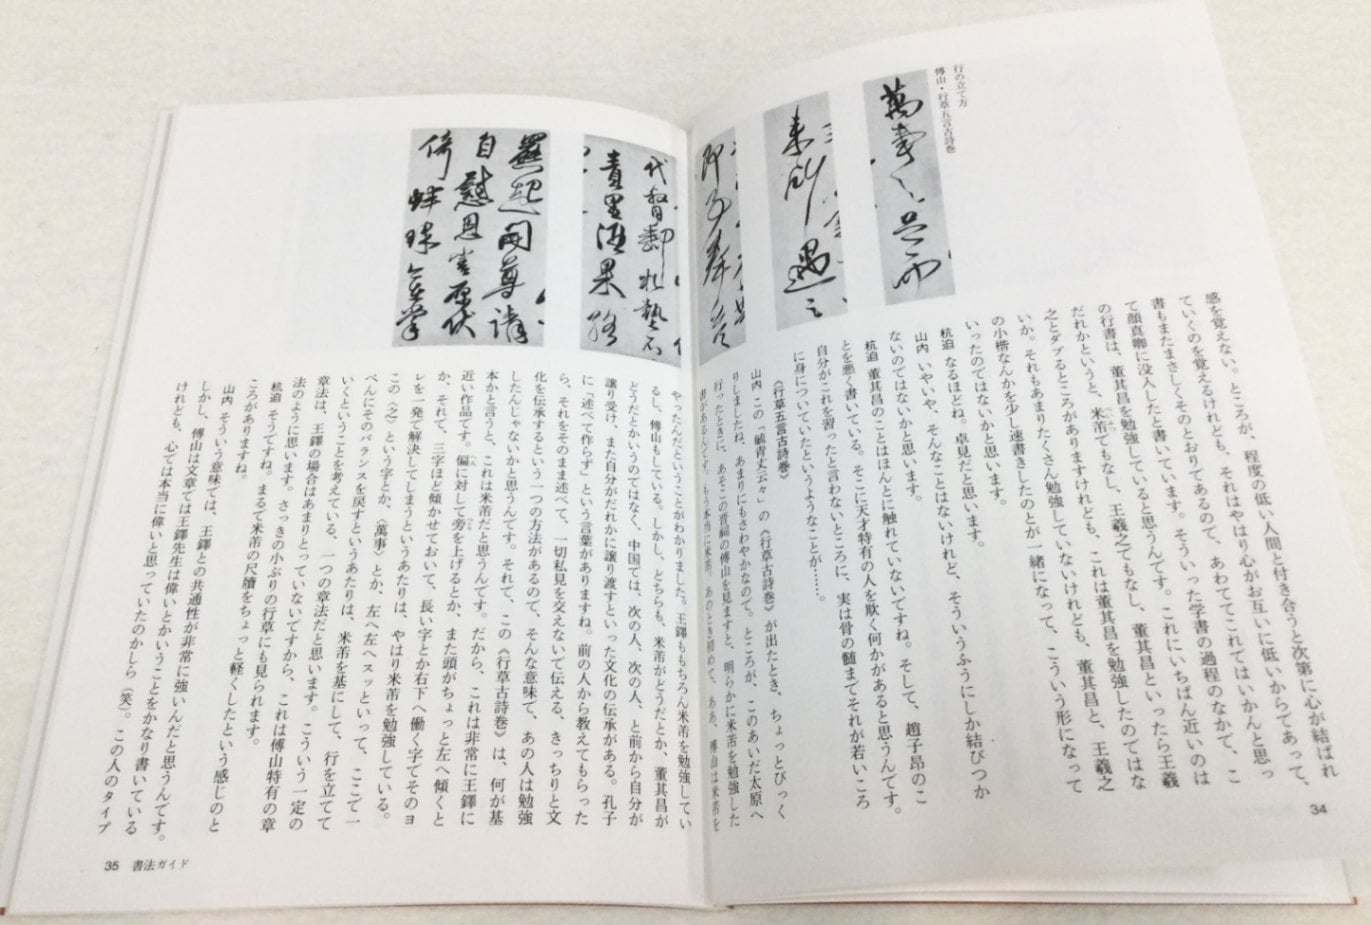 行の立て方
傅山・行草五言古詩巻
感を覚えない。ところが、程度の低い人間と付き合うと次第に心が結ばれ
ていくのを覚えるけれども、それはやはり心がお互いに低いからであって、
書もまたまさしくそのとおりであるので、あわててこれではいかんと思っ
て顔真卿に没入したと書いています。そういった学書の過程のなかで、こ
の行書は、董其昌を勉強していると思うんです。これにいちばん近いのは
だれかというと、米芾でもなし、王羲之でもなし、董其昌といったら王羲
之とダブるところがありますけれども、これは董其昌を勉強したのではな
いか。それもあまりたくさん勉強していないけれども、董其昌と、王羲之
の小楷なんかを少し速書きしたのとが一緒になって、こういう形になって
いったのではないかと思います。
杭迫 なるほどね。卓見だと思います。
山内 いやいや、そんなことはないけれど、そういうふうにしか結びつか
ないのではないかと思います。
杭迫 董其昌のことはほんとに触れていないですね。そして、趙子昂のこ
とを悪く書いている。そこに天才特有の人を欺く何かがあると思うんです。
自分がこれを習ったと言わないところに、実は骨の髄までそれが若いころ
に身についていたというようなことが……。
《行草五言古詩巻》
山内 この「毓青丈云々」の《行草古詩巻》が出たとき、ちょっとびっく
りしましたね、あまりにもさわやかなので。ところが、このあいだ太原へ
行ったときに、あそこの晋祠の傅山を見ますと、明らかに米芾を勉強した
書があるんです。もう本当に米芾。あのとき初めて、ああ、傅山は米芾を
34
やったんだということがわかりました。王鐸ももちろん米芾を勉強してい
るし、傅山もしている。しかし、どちらも、米芾がどうだとか、董其昌が
どうだとかいうのではなく、中国では、次の人、次の人、と前から自分が
譲り受け、また自分がだれかに譲り渡すといった文化の伝承がある。孔子
に「述べて作らず」という言葉がありますね。前の人から教えてもらった
ら、それをそのまま述べて、一切私見を交えないで伝える、きっちりと文
化を伝承するという一つの方法があるので、そんな意味で、あの人は勉強
したんじゃないかと思うんです。それで、この《行草古詩巻》は、何が基
本かと言うと、これは米芾だと思うんです。だから、これは非常に王鐸に
近い作品です。偏に対して旁を上げるとか、また頭がちょっと左へ傾くと
か、それで、三字ほど傾かせておいて、長い字とか右下へ働く字でそのヨ
レを一発で解決してしまうというあたりは、やはり米芾を勉強している。
この〈之〉という字とか、〈萬事〉とか、左へ左へスッといって、ここで一
ぺんにそのバランスを戻すというあたりは、米芾を基にして、行を立てて
いくということを考えている、一つの章法だと思います。こういう一定の
章法は、王鐸の場合はあまりとっていないですから、これは傅山特有の章
法のように思います。さっきの小ぶりの行草にも見られます。
杭迫 そうですね。まるで米芾の尺牘をちょっと軽くしたという感じのと
ころがありますね。
山内 そういう意味では、王鐸との共通性が非常に強いんだと思うんです。
しかし、傅山は文章では王鐸先生は偉いとかいうことをかなり書いている
けれども、心では本当に偉いと思っていたのかしら（笑）。この人のタイプ
35 書法ガイド